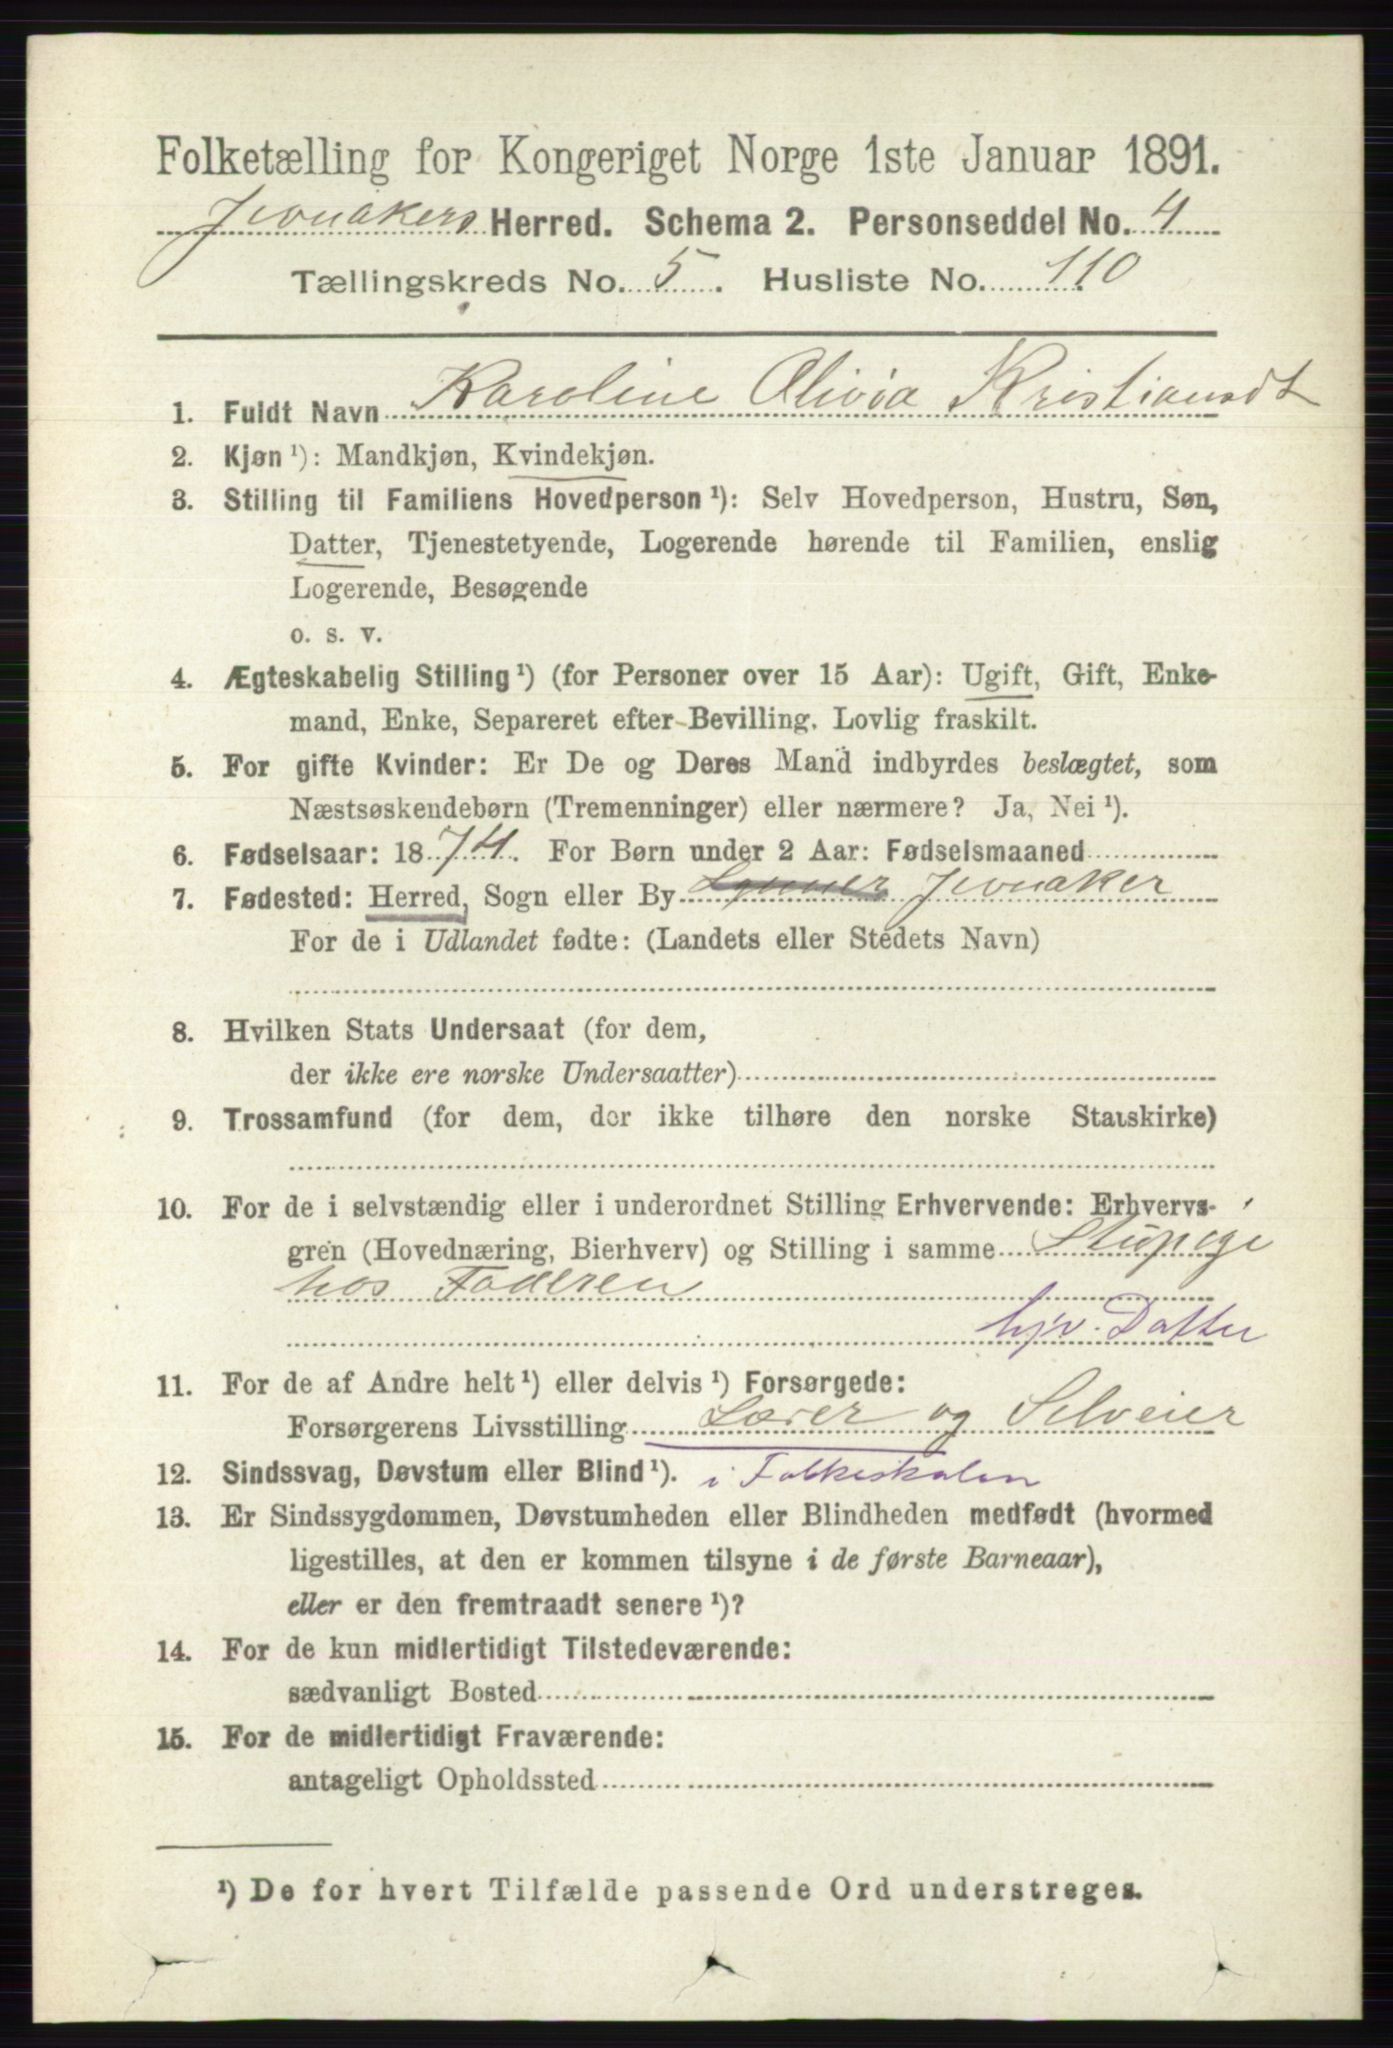 Folketælling for Kongeriget Norge 1ste Januar 1891.
Jevnakers Herred. Schema 2. Personseddel No. 4
Tællingskreds No. 5. Husliste No. 110
1. Fuldt Navn Karoline Olivia Kristiansdt
2. Kjøn ¹): Mandkjøn, Kvindekjøn.
3. Stilling til Familiens Hovedperson ¹): Selv Hovedperson, Hustru, Søn,
Datter, Tjenestetyende, Logerende hørende til Familien, enslig
Logerende, Besøgende
o. s. v.
4. Ægteskabelig Stilling ¹) (for Personer over 15 Aar): Ugift, Gift, Enke-
mand, Enke, Separeret efter Bevilling. Lovlig fraskilt.
5. For gifte Kvinder: Er De og Deres Mand indbyrdes beslægtet, som
Næstsøskendebørn (Tremenninger) eller nærmere? Ja, Nei ¹).
6. Fødselsaar: 1874. For Børn under 2 Aar: Fødselsmaaned
7. Fødested: Herred, Sogn eller By Lynner Jevnaker
For de i Udlandet fødte: (Landets eller Stedets Navn)
8. Hvilken Stats Undersaat (for dem,
der ikke ere norske Undersaatter)
9. Trossamfund (for dem, der ikke tilhøre den norske Statskirke)
10. For de i selvstændig eller i underordnet Stilling Erhvervende: Erhvervs-
gren (Hovednæring, Bierhverv) og Stilling i samme
hos Faderen
hjv. Datter
11. For de af Andre helt ¹) eller delvis ¹) Forsørgede:
Forsørgerens Livsstilling Lærer og Selveier
12. Sindssvag, Døvstum eller Blind ¹). i Folkeskolen
13. Er Sindssygdommen, Døvstumheden eller Blindheden medfødt (hvormed
ligestilles, at den er kommen tilsyne i de første Barneaar),
eller er den fremtraadt senere ¹)?
14. For de kun midlertidigt Tilstedeværende:
sædvanligt Bosted
15. For de midlertidigt Fraværende:
antageligt Opholdssted
¹) De for hvert Tilfælde passende Ord understreges.